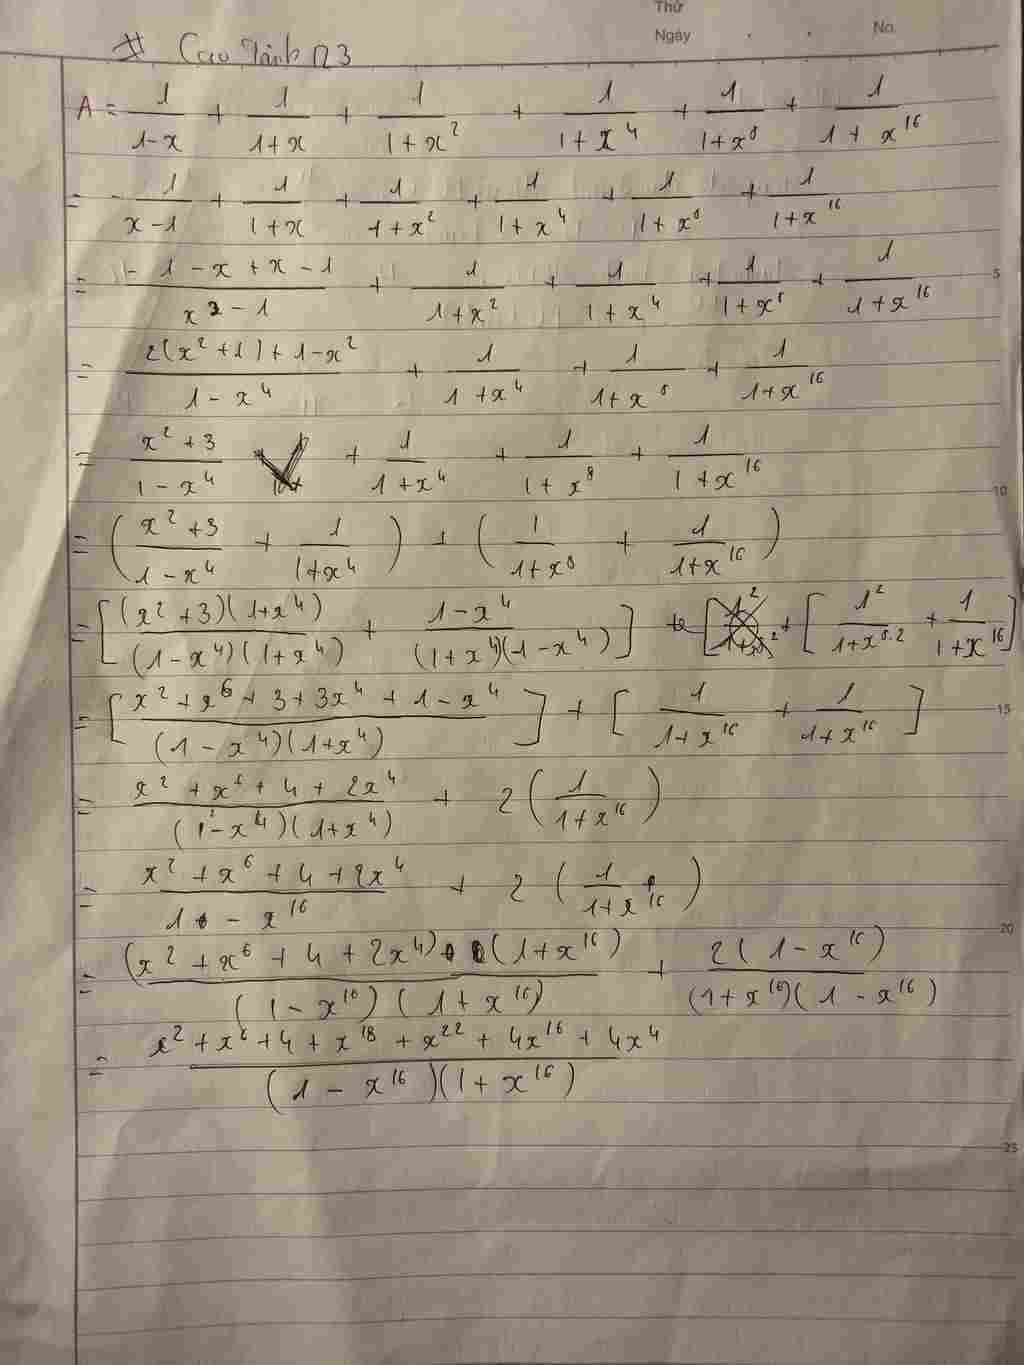 Thứ
Ngày . . No.
# Cao Mành 123
A = 1/(1-x) + 1/(1+x) + 1/(1+x^2) + 1/(1+x^4) + 1/(1+x^8) + 1/(1+x^16)
= - 1/(x-1) + 1/(1+x) + 1/(1+x^2) + 1/(1+x^4) + 1/(1+x^8) + 1/(1+x^16)
= (-1-x+x-1)/(x^2-1) + 1/(1+x^2) + 1/(1+x^4) + 1/(1+x^8) + 1/(1+x^16)
5
= (2(x^2+1)+1-x^2)/(1-x^4) + 1/(1+x^4) + 1/(1+x^8) + 1/(1+x^16)
= (x^2+3)/(1-x^4) + 1/(1+x^4) + 1/(1+x^8) + 1/(1+x^16)
10
= ((x^2+3)/(1-x^4) + 1/(1+x^4)) + (1/(1+x^8) + 1/(1+x^16))
= [(x^2+3)(1+x^4)/((1-x^4)(1+x^4)) + (1-x^4)/((1+x^4)(1-x^4))] + [1^2/(1+x^8.2) + 1/(1+x^16)]
= [(x^2+x^6+3+3x^4+1-x^4)/((1-x^4)(1+x^4))] + [1/(1+x^16) + 1/(1+x^16)]
15
= (x^2+x^6+4+2x^4)/((1-x^4)(1+x^4)) + 2(1/(1+x^16))
= (x^2+x^6+4+2x^4)/(1-x^16) + 2(1/(1+x^16))
20
= (x^2+x^6+4+2x^4)(1+x^16)/((1-x^16)(1+x^16)) + 2(1-x^16)/((1+x^16)(1-x^16))
= (x^2+x^6+4+x^18+x^22+4x^16+4x^4)/((1-x^16)(1+x^16))
25